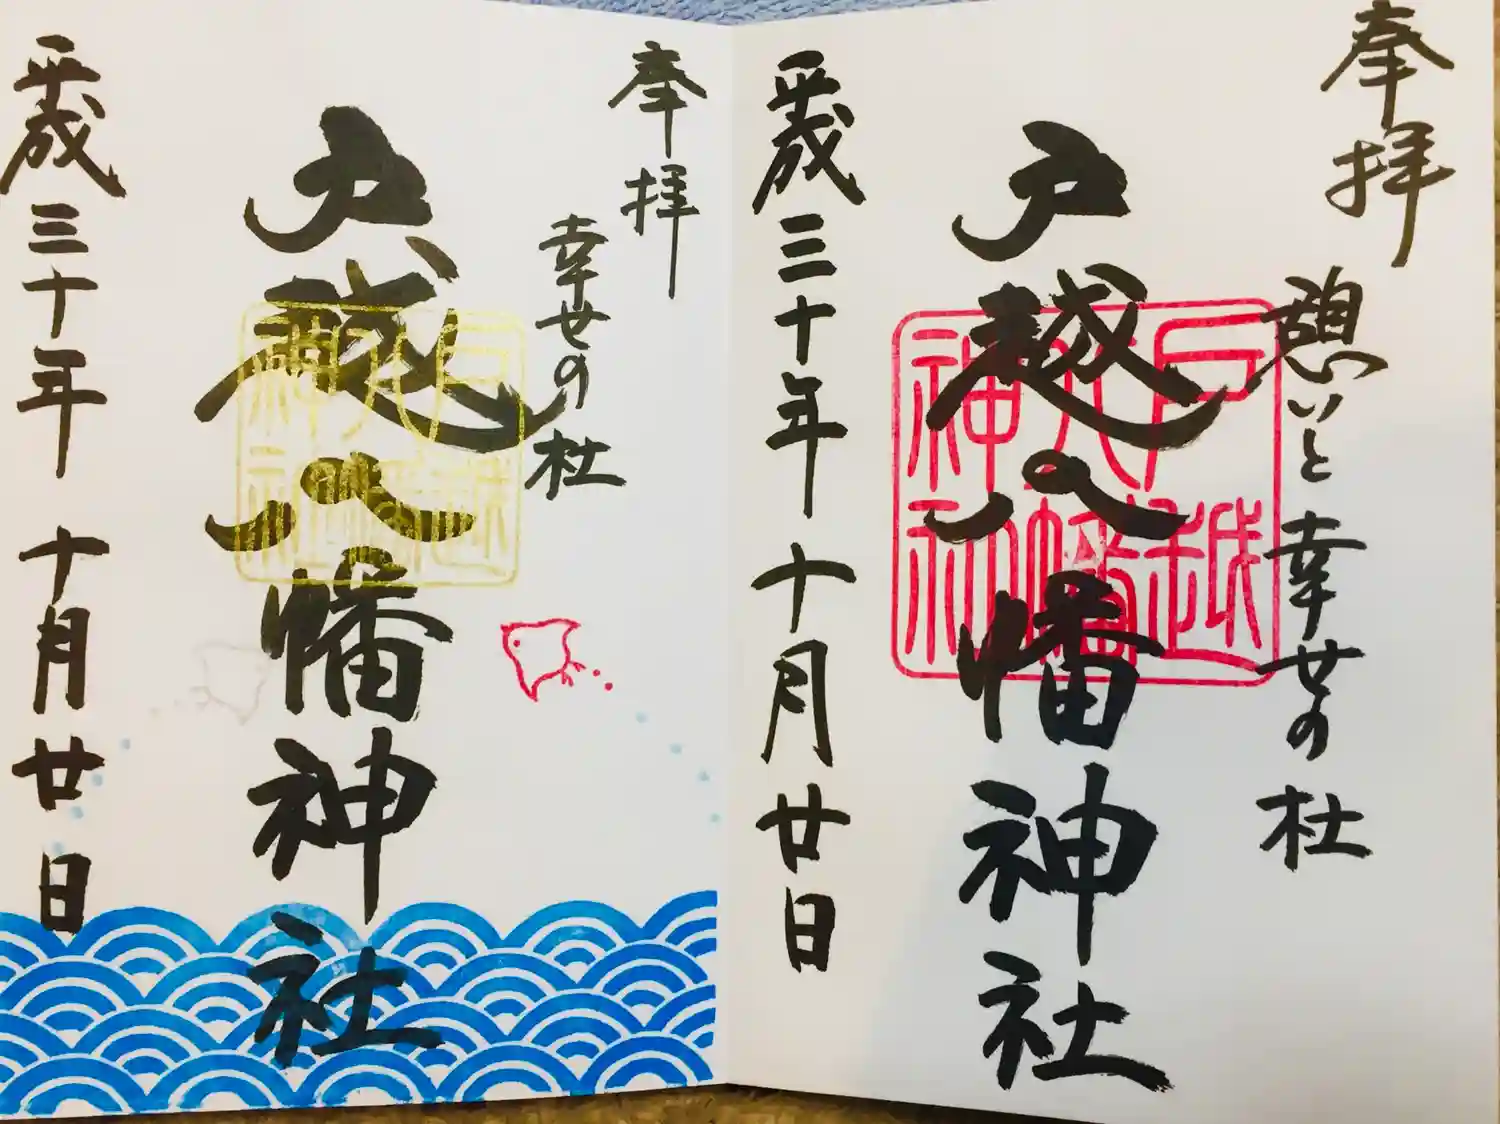 奉拝
憩いと幸せの杜
戸越八幡神社
戸越八幡神社
平成三十年十月廿日
奉拝
幸せの杜
戸越八幡神社
戸越八幡神社
平成三十年十月廿日